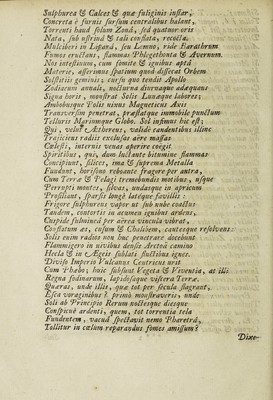 Sulphurea & Calces & quæ fuliginis instar,
Concreta è furnis sursum centralibus halant,
Torrenti haud solum Zonâ, sed quatuor oris
Nata, sub ustrinâ & tali constata, recocta.
Mulciberi in Liparâ, seu Lemno, ride Barathrum
Fumos eructans, flammas Phlegethonta & Avernum.
Nos intestinum, cum fomite & ignibus aptâ
Materie, asserimus spatium quod dissecat Orbem
Solstitiis geminis; cursu quo tendit Apollo
Zodiacum annali, nocturna diurnaque adæquans
Signa horis, monstrat Solis Lunæque labores;
Ambobusque Polis ninus Magneticus Axis
Transversim penetrat, præstatque immobile punctum
Telluris Marisnque Globo. Sol infimus hic est;
Qui, velut Æthereus, validè candentibus illinc
Trajicitur radiis excelsa aëre massâ:
Cælesti, internis venas aperire coëgit
Spiritibus, qui, dum luctante bitumine flammas
Concipiunt, silices, ima & suprema Metalla
Fundunt, horisono reboante fragore per antra,
Cum Terræ & Pelagi tremebundis motibus, usque
Perrupti montes, silvas, undasque in apricum
Prosiliant, sparsis longè latéque favillis:
Frigore sulphureus vapor ut sub nube coactus
Tandem, contortis in acumen ignibus ardens,
Cuspide fulmineâ per aërea vincula vibrat,
Conflatum æs, cusum & Chalibem, cautesque resolvens:
Solis enim radios non huc penetrare docebunt
Flammigero in nivibus densis Arctoâ camino
Hecla & in Ægeis sublati fluctibus ignes.
Diviso Imperio Vulcanus Centricus urit
Cum Phœbo; huic subsunt Vegeta & Viventia, at illi
Regna fodinarum, lapidesque viscera Terræ.
Quæras, unde illis, quæ tot per secula flagrant,
Esca voraginibus? primò monstraveris, unde
Soli ab Principio Rerum noctesque diesque
Conspicuè ardenti, quem, tot torrentia tela
Fundentem, vacuâ spectavit nemo Pharetrâ,
Tollitur in cœlum reparandus fomes amissum?
Dixe-